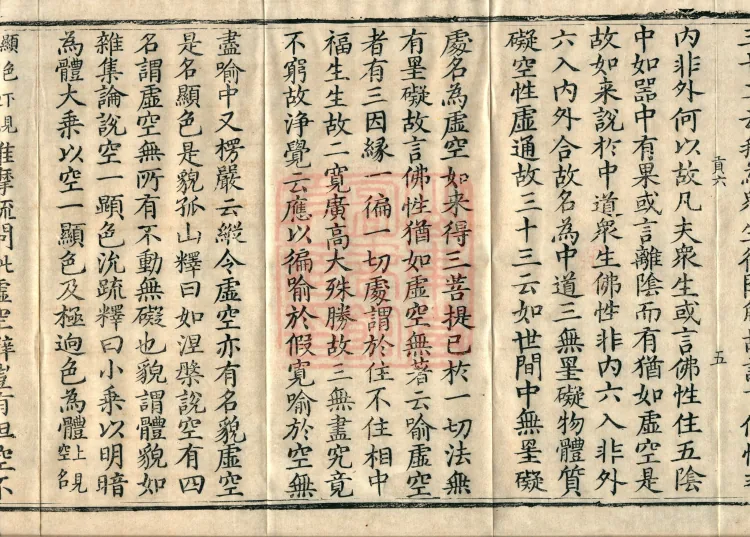 内非外何以故凡夫衆生或言佛性住五陰
中如噐中有果或言離陰而有猶如虚空是
故如来說於中道衆生佛性非内六入非外
六入内外合故名為中道三無罣礙物體質
礙空性虚通故三十三云如世間中無罣礙
處名為虚空如来得三菩提已於一切法無
有罣礙故言佛性猶如虚空無著云喻虚空
者有三因縁一徧一切處謂於住不住相中
福生生故二寛廣高大殊勝故三無盡究竟
不窮故淨覺云應以徧喻於假寛喻於空無
盡喻中又楞嚴云縱令虚空亦有名貌虚空
是名顯色是貌孤山釋曰如涅槃說空有四
名謂虚空無所有不動無礙也貌謂體貌如
雜集論說空一顯色沇疏釋曰小乗以明暗
為體大乗以空一顯色及極逈色為體上見空名
顯色下見維摩疏問此虚空
貢六
五